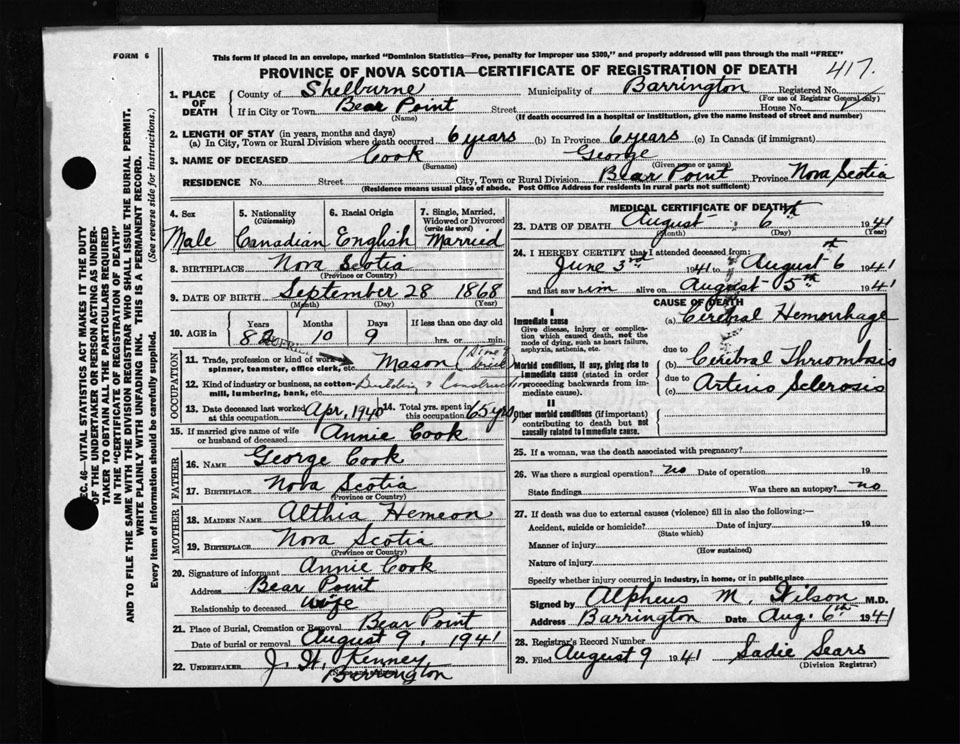 FORM 6
This form if placed in an envelope, marked "Dominion Statistics—Free, penalty for improper use $300," and properly addressed will pass through the mail "FREE"
PROVINCE OF NOVA SCOTIA—CERTIFICATE OF REGISTRATION OF DEATH
417.
1. PLACE OF DEATH
County of Shelburne Municipality of Barrington Registered No.
(For use of Registrar General only)
If in City or Town Bear Point Street House No.
(Name) (If death occurred in a hospital or institution, give the name instead of street and number)
2. LENGTH OF STAY (in years, months and days)
(a) In City, Town or Rural Division where death occurred 6 years (b) In Province 6 years (c) In Canada (if immigrant)
3. NAME OF DECEASED Cook George
(Surname) (Given name or names)
RESIDENCE No. Street City, Town or Rural Division Bear Point Province Nova Scotia
(Residence means usual place of abode. Post Office Address for residents in rural parts not sufficient)
4. Sex Male
5. Nationality (Citizenship) Canadian
6. Racial Origin English
7. Single, Married, Widowed or Divorced (write the word) Married
8. BIRTHPLACE Nova Scotia
(Province or Country)
9. DATE OF BIRTH September 28 1868
(Month) (Day) (Year)
10. AGE in Years Months Days If less than one day old
10 9 hrs. or min.
OCCUPATION
11. Trade, profession or kind of work as spinner, teamster, office clerk, etc. Mason
12. Kind of industry or business, as cotton-mill, lumbering, bank, etc. Building & Construction
13. Date deceased last worked at this occupation Apr, 1940
14. Total yrs. spent in this occupation 65 yrs
15. If married give name of wife or husband of deceased Annie Cook
FATHER
16. NAME George Cook
17. BIRTHPLACE Nova Scotia
(Province or Country)
MOTHER
18. MAIDEN NAME Althia Hemeon
19. BIRTHPLACE Nova Scotia
(Province or Country)
20. Signature of informant Annie Cook
Address Bear Point
Relationship to deceased wife
21. Place of Burial, Cremation or Removal Bear Point
Date of burial or removal August 9, 1941
22. UNDERTAKER J. H. Kenney,
Barrington
MEDICAL CERTIFICATE OF DEATH
23. DATE OF DEATH August 6th 1941
(Month) (Day) (Year)
24. I HEREBY CERTIFY that I attended deceased from:
June 3rd 1941 to August 6th 1941
and last saw him alive on August 5th 1941
CAUSE OF DEATH
I
Immediate cause
Give disease, injury or complication which caused death, not the mode of dying, such as heart failure, asphyxia, asthenia, etc.
(a) Cerebral Hemorrhage
due to
Morbid conditions, if any, giving rise to immediate cause (stated in order proceeding backwards from immediate cause).
(b) Cerebral Thrombosis
due to
(c) Arterio Sclerosis
II
Other morbid conditions (if important) contributing to death but not causally related to immediate cause.
25. If a woman, was the death associated with pregnancy?
26. Was there a surgical operation? no Date of operation 19
State findings Was there an autopsy? no
27. If death was due to external causes (violence) fill in also the following:—
Accident, suicide or homicide? Date of injury 19
(State which)
Manner of injury
(How sustained)
Nature of injury
Specify whether injury occurred in industry, in home, or in public place
Signed by Alpheus M. Wilson M.D.
Address Barrington Date Aug. 6th 1941
28. Registrar's Record Number
29. Filed August 9 1941 Sadie Sears
(Division Registrar)
SEC. 46—VITAL STATISTICS ACT MAKES IT THE DUTY
OF THE UNDERTAKER OR PERSON ACTING AS UNDER-
TAKER TO OBTAIN ALL THE PARTICULARS REQUIRED
IN THE "CERTIFICATE OF REGISTRATION OF DEATH"
AND TO FILE THE SAME WITH THE DIVISION REGISTRAR WHO SHALL ISSUE THE BURIAL PERMIT.
WRITE PLAINLY WITH UNFADING INK. THIS IS A PERMANENT RECORD.
Every item of information should be carefully supplied. (See reverse side for instructions.)